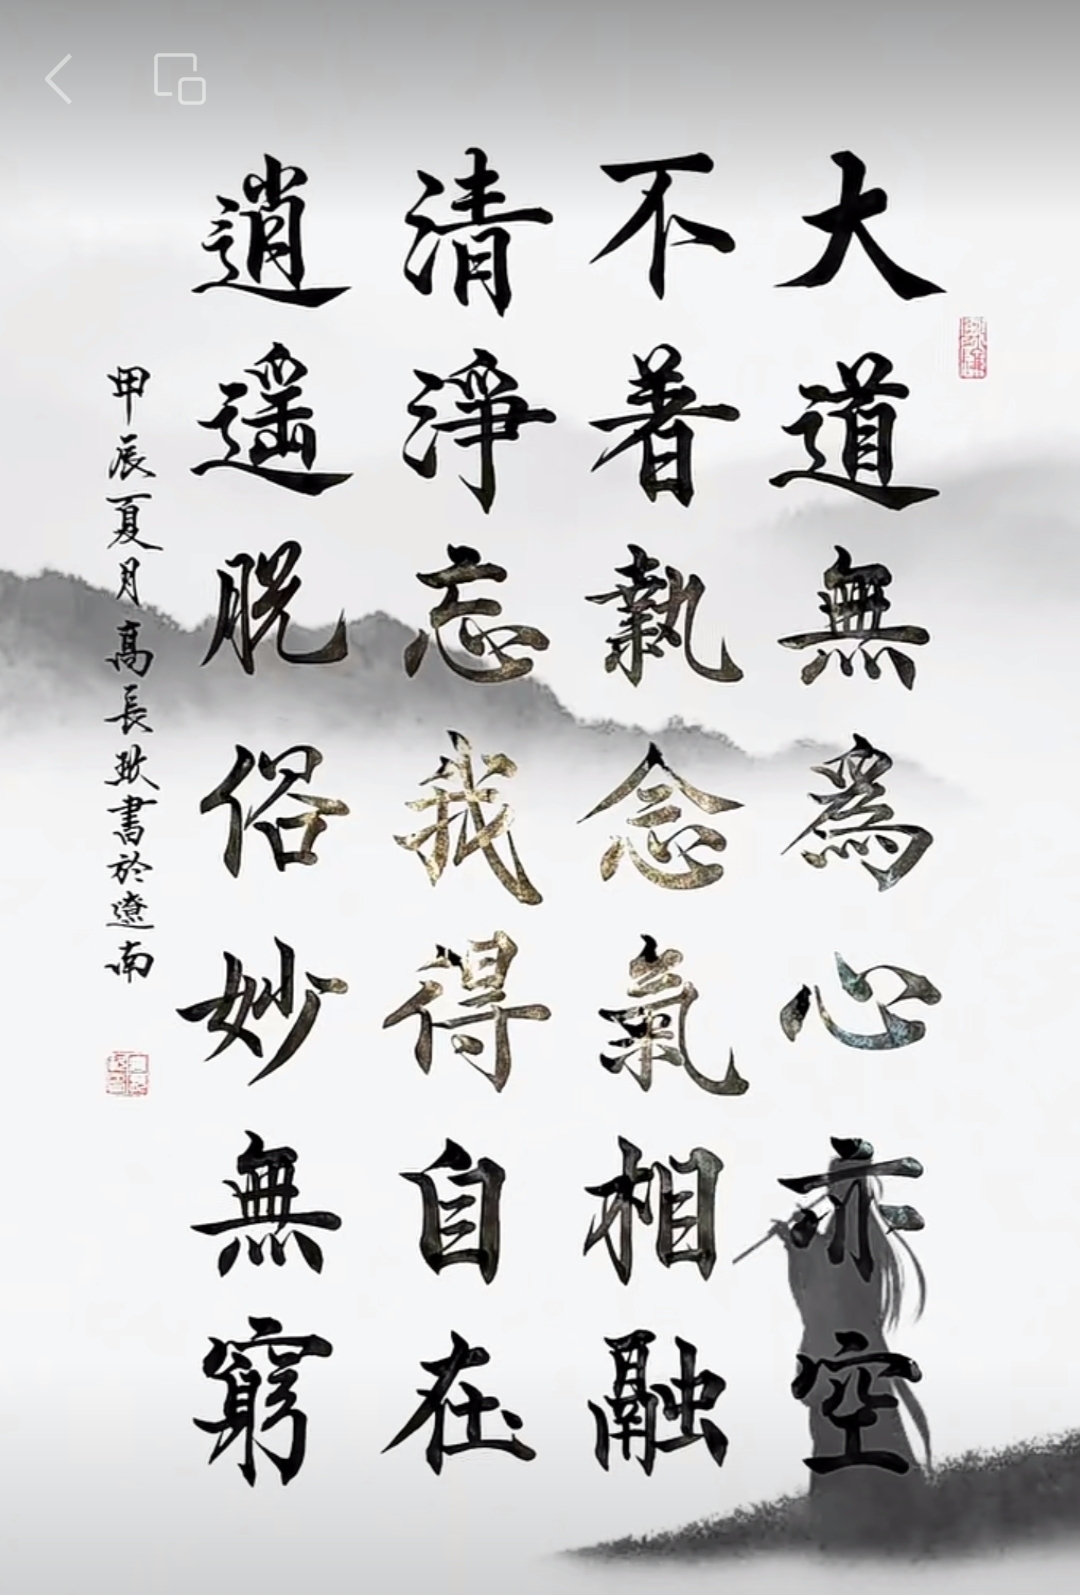 大道無為心亦空
不著執念氣相融
清淨忘我得自在
逍遙脫俗妙無窮
甲辰夏月高長欣書於遼南